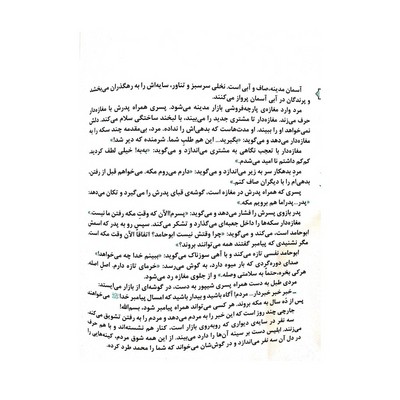 آسمان مدینه،صاف و آبی است. نخلی سرسبز و تناور، سایه‌اش را به رهگذران می‌بخشد
و پرندگان در آبی آسمان پرواز می‌کنند.
مرد وارد مغازه‌ی پارچه‌فروشی بازار مدینه می‌شود. پسری همراه پدرش با مغازه‌دار
حرف می‌زند. مغازه‌دار تا مشتری جدید را می‌بیند، با لبخند ساختگی سلام می‌کند. دلش
نمی‌خواهد او را ببیند. او مدت‌هاست که بدهی‌اش را نداده. مرد، بی‌مقدمه چند سکه را به
مغازه‌دار می‌دهد و می‌گوید: «بگیرید... این هم طلبِ شما. شرمنده که دیر شد!»
مغازه‌دار با تعجب نگاهی به مشتری می‌اندازد و می‌گوید: «به‌به! خیلی لطف کردید.
کم‌کم داشتم نا امید می‌شدم.»
مردِ بدهکار سر به زیر می‌اندازد و می‌گوید: «دارم می‌روم مکه. می‌خواهم قبل از رفتن،
بدهی‌ام را با دیگران صاف کنم.»
پسری که همراه پدرش در مغازه است، گوشه‌ی قبای پدرش را می‌گیرد و تکان می‌دهد:
«پدر...پدر!ما هم برویم مکه.»
پدر بازوی پسرش را فشار می‌دهد و می‌گوید: «پسرم!الآن که وقت مکه رفتن ما نیست.»
مغازه‌دار سکه‌ها را داخل جعبه‌ای می‌گذارد و تشکر می‌کند. سپس رو به پدر که اسمش
ابوحامد است، می‌کند و می‌گوید: «چرا وقتش نیست ابوحامد؟ اتفاقاً الآن وقت مکه است.
مگر نشنیدی که پیامبر گفتند همه می‌توانند بروند؟»
ابوحامد نفسی تازه می‌کند و با آهی سوزناک می‌گوید: «ببینم خدا چه می‌خواهد!»
صدای دوره‌گردی که بار میوه دارد، به گوش می‌رسد: «خرمای تازه دارم. اصل اصله
هرکی بخره،حتماً به سلامتی وصله.» و از جلوی مغازه رد می‌شود.
مردی طبل به دست همراه پسری شیپور به دست، در گوشه‌ای از بازار می‌ایستد:
ـ خبر خبر خبردار... مردم! آگاه باشید و بیدار باشید که امسال پیامبر خدا ﷺ می‌خواهند
پس از ده سال به مکه بروند. هر کسی می‌تواند همراه پیامبر شود، بسم‌الله!
جارچی چند روز است که این خبر را به مردم می‌دهد و مردم را به رفتن تشویق می‌کند.
سه نفر در سایه‌ی دیواری که روبه‌روی بازار است، کنار هم نشسته‌اند و با هم حرف
می‌زنند. ابلیس دست بر سینه آن‌ها را دارد می‌بیند. از این همه شوق مردم، کینه‌هایی را
در دل آن سه نفر می‌اندازد و در گوش‌شان می‌خواند که شما را محمد طرد کرده.